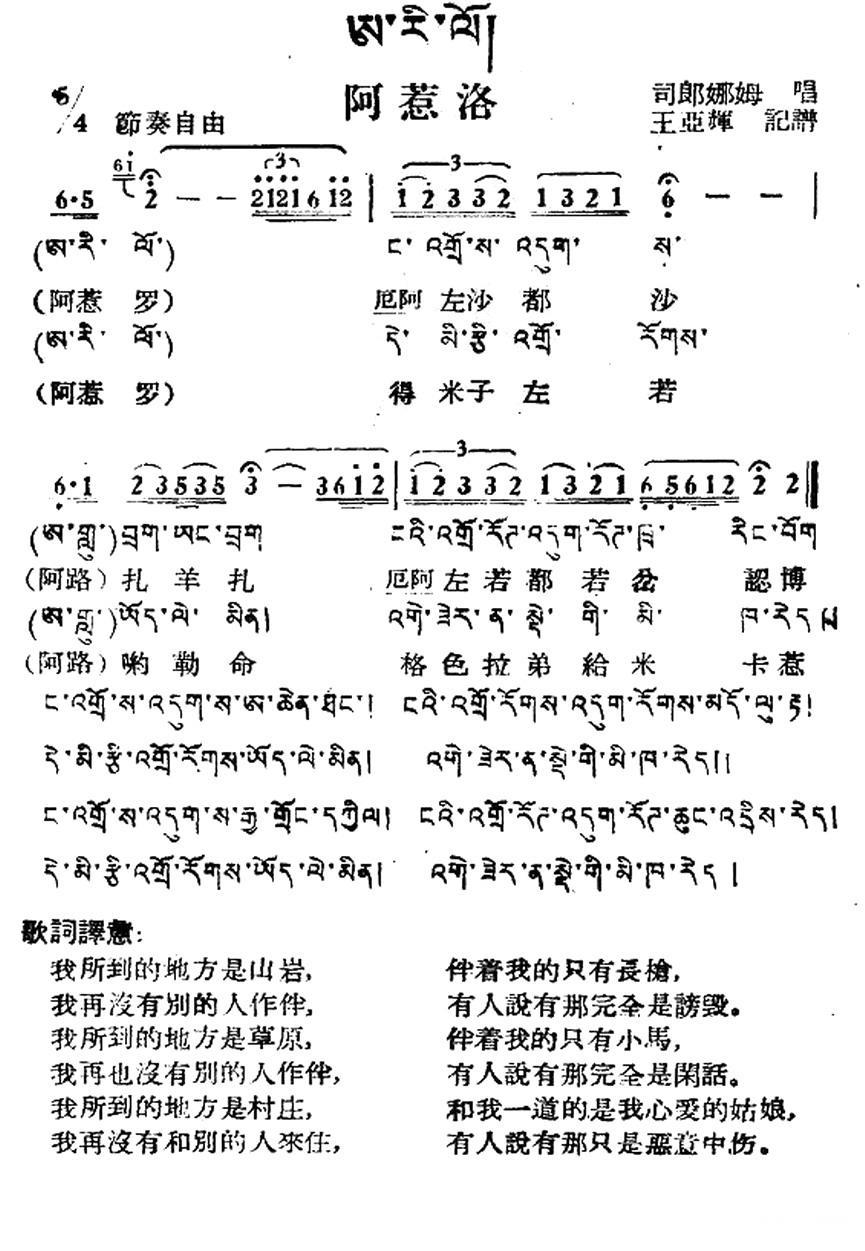 ཨ་རི་ལོ།
阿惹洛
5/4 節奏自由
司郎娜姆 唱
王亞輝 記譜
6·5 61 2 — — 2121 6 12 | 12332 1321 6 — — |
(ཨ་རི་ ལོ་) ང་ འགྲོ་ས་ འདུག་ ས་
(阿惹 罗) 厄阿 左沙 都 沙
(ཨ་རི་ ལོ་) དེ་ མི་རྩི་ འགྲོ་ དོགས་
(阿惹 罗) 得 米子 左 若
6·1 23535 3 — 3612 | 12332 1321 65612 2 2
(ཨ་གླུ་)བྲག་ཨང་བྲག ངའི་འགྲོ་རོཊ་འདུག་རོཊ་ཁྲ་ རིང་བོག
(阿路) 扎 羊 扎 厄阿 左 若 都 若 岔 認 博
(ཨ་གླུ་)ཡོད་ལེ་ མིན། འགེ་ཟེར་ན་སྡེ་ གི་ མི་ ཁ་རེད།
(阿路) 喲 勒 命 格 色 拉 弟 給 米 卡 惹
ང་འགྲོ་ས་འདུག་ས་ཨ་ཆེན་ཐང་། ངའི་འགྲོ་རོགས་འདུག་རོགས་མདོ་ལུ་རྟ།
དེ་མི་རྩི་འགྲོ་རོགས་ཡོད་ལེ་མིན། འགེ་ཟེར་ན་སྡེ་གི་མི་ཁ་རེད།།
ང་འགྲོ་ས་འདུག་ས་རྒྱ་གྲོང་དཀྱིལ། ངའི་འགྲོ་རོཊ་འདུག་རོཊ་ཆུང་འདྲིས་རེད།
དེ་མི་རྩི་འགྲོ་རོགས་ཡོད་ལེ་མིན། འགེ་ཟེར་ན་སྡེ་གི་མི་ཁ་རེད །
歌詞譯意:
我所到的地方是山岩, 伴着我的只有長槍,
我再沒有別的人作伴, 有人說有那完全是謗毀。
我所到的地方是草原, 伴着我的只有小馬,
我再也沒有別的人作伴, 有人說有那完全是閑話。
我所到的地方是村庄, 和我一道的是我心愛的姑娘,
我再沒有和別的人來住, 有人說有那只是惡意中伤。